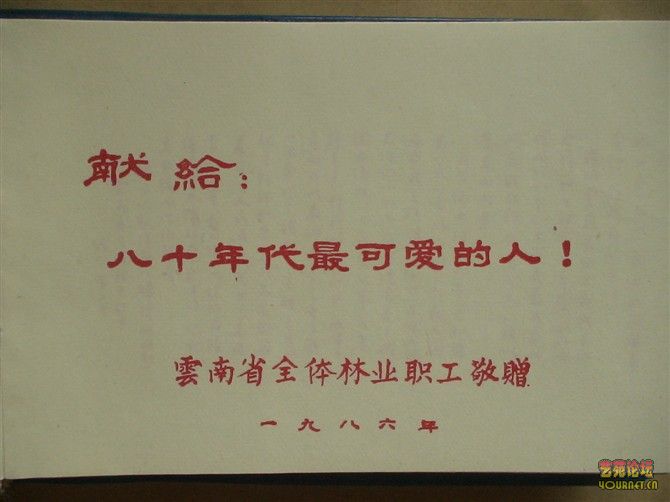 献给：
八十年代最可爱的人！
雲南省全体林业职工敬赠
一九八六年
艺苑论坛
YOURNET.CN